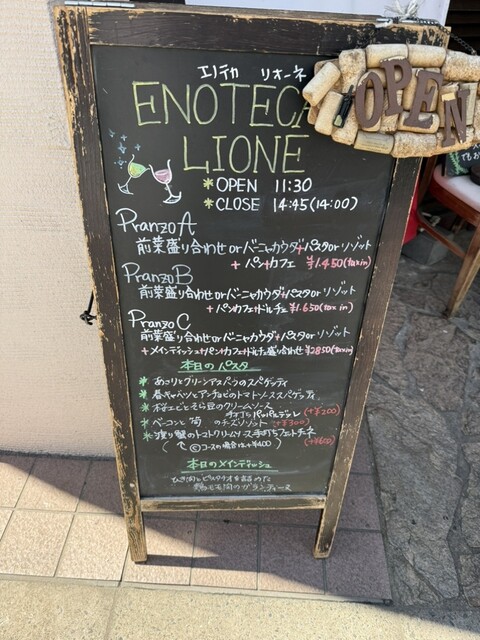 エノテカ リオーネ
ENOTECA
OPEN
LIONE
*OPEN 11:30
*CLOSE 14:45(14:00)
Pranzo A
前菜盛り合わせorバーニャカウダ+パスタorリゾット
+パン+カフェ ¥1.450(tax in)
Pranzo B
前菜盛り合わせorバーニャカウダ+パスタorリゾット
+パン+カフェ+ドルチェ ¥1.650(tax in)
Pranzo C
前菜盛り合わせorバーニャカウダ+パスタorリゾット
+メインディッシュ+パン+カフェ+ドルチェ盛り合わせ ¥2850(tax in)
本日のパスタ
*あさりとグリーンアスパラのスパゲッティ
*春キャベツとアンチョビのトマトソーススパゲッティ
*桜エビとそら豆のクリームソース
手打ちパッパルデッレ (+¥200)
*ベーコンと筍のチーズリゾット (+¥300)
*渡り蟹のトマトクリームソース手打ちフェトチーネ
(↑ ©コースの場合は+¥400) (+¥600)
本日のメインディッシュ
ひき肉とピスタチオを詰めた
鶏もも肉のガランティーヌ